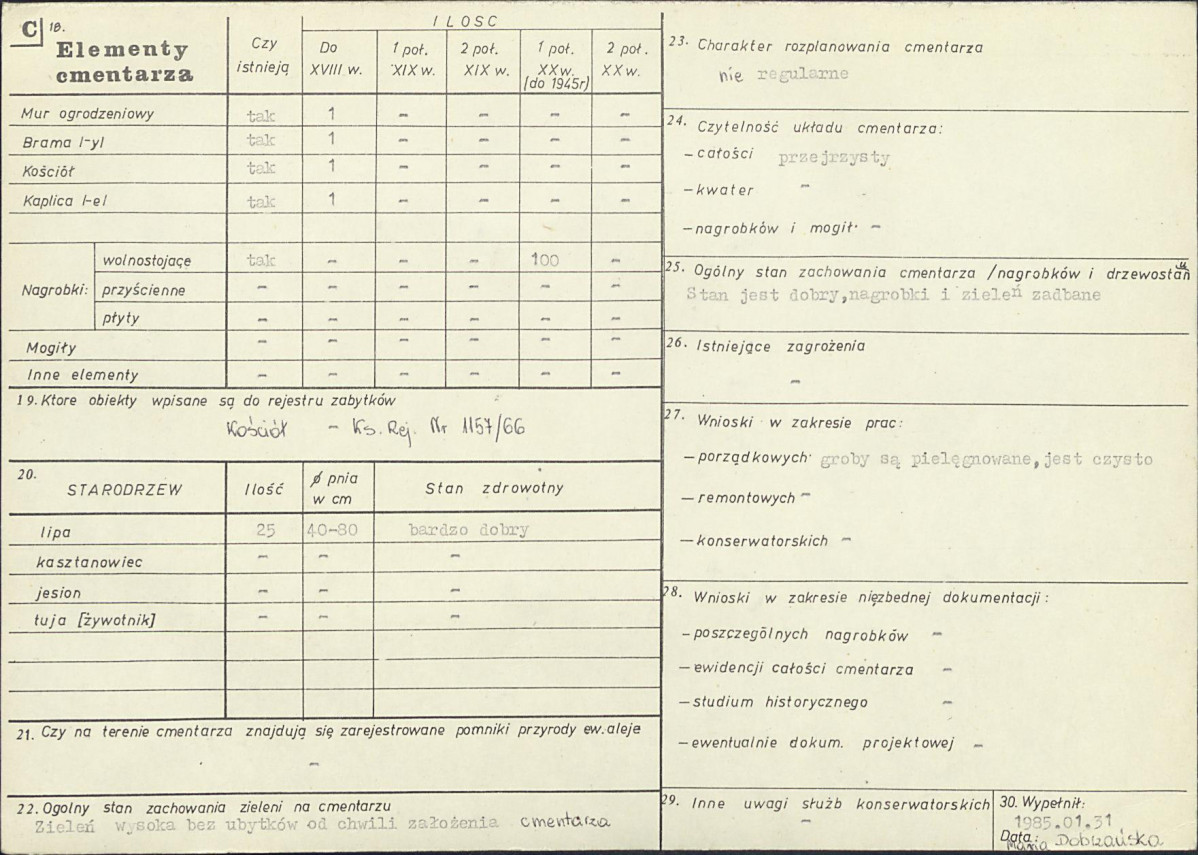 C 18.
Elementy
cmentarza
Czy
istnieją
ILOSC
Do
XVIII w.
1 poł.
XIX w.
2 poł.
XIX w.
1 poł.
XX w.
(do 1945r)
2 poł.
XX w.
Mur ogrodzeniowy tak 1 - - - -
Brama /-y/ tak 1 - - - -
Kościół tak 1 - - - -
Kaplica /-e/ tak 1 - - - -
Nagrobki:
wolnostojące tak - - - 100 -
przyścienne - - - - - -
płyty - - - - - -
Mogiły - - - - - -
Inne elementy - - - - - -
19. Ktore obiekty wpisane są do rejestru zabytków
Kościół - Ks. Rej. Nr 1157/66
20.
STARODRZEW Ilość ø pnia w cm Stan zdrowotny
lipa 25 40-80 bardzo dobry
kasztanowiec - - -
jesion - - -
tuja [żywotnik] - - -
21. Czy na terenie cmentarza znajdują się zarejestrowane pomniki przyrody ew. aleje
-
22. Ogolny stan zachowania zieleni na cmentarzu
Zieleń wysoka bez ubytków od chwili założenia cmentarza
23. Charakter rozplanowania cmentarza
nie regularne
24. Czytelność układu cmentarza:
- całości przejrzysty
- kwater -
- nagrobków i mogił -
25. Ogólny stan zachowania cmentarza /nagrobków i drzewostanu
Stan jest dobry, nagrobki i zieleń zadbane
26. Istniejące zagrożenia
-
27. Wnioski w zakresie prac:
- porządkowych groby są pielęgnowane, jest czysto
- remontowych -
- konserwatorskich -
28. Wnioski w zakresie nięzbednej dokumentacji:
- poszczególnych nagrobków -
- ewidencji całości cmentarza -
- studium historycznego -
- ewentualnie dokum. projektowej -
29. Inne uwagi służb konserwatorskich
-
30. Wypełnił:
1985.01.31
Data:
Maria Dobrzańska